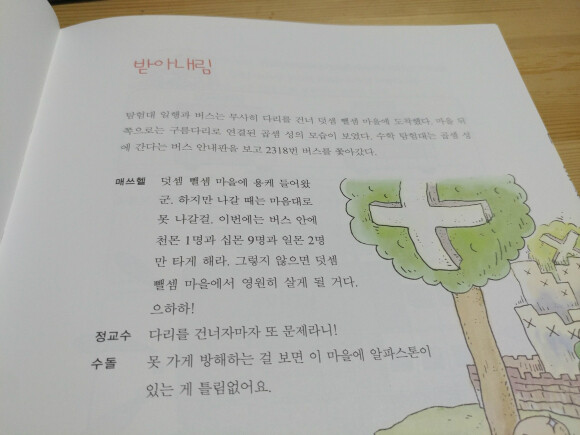 탐험대 일행과 버스는 무사히 다리를 건너 덧셈 뺄셈 마을에 도착했다. 마을 뒤
쪽으로는 구름다리로 연결된 곱셈 성의 모습이 보였다. 수학 탐험대는 곱셈 성
에 간다는 버스 안내판을 보고 2318번 버스를 쫓아갔다.
매쓰헬 덧셈 뺄셈 마을에 용케 들어왔
군. 하지만 나갈 때는 마음대로
못 나갈걸. 이번에는 버스 안에
천몬 1명과 십몬 9명과 일몬 2명
만 타게 해라. 그렇지 않으면 덧셈
뺄셈 마을에서 영원히 살게 될 거다.
으하하!
정교수 다리를 건너자마자 또 문제라니!
수돌 못 가게 방해하는 걸 보면 이 마을에 알파스톤이
있는 게 틀림없어요.